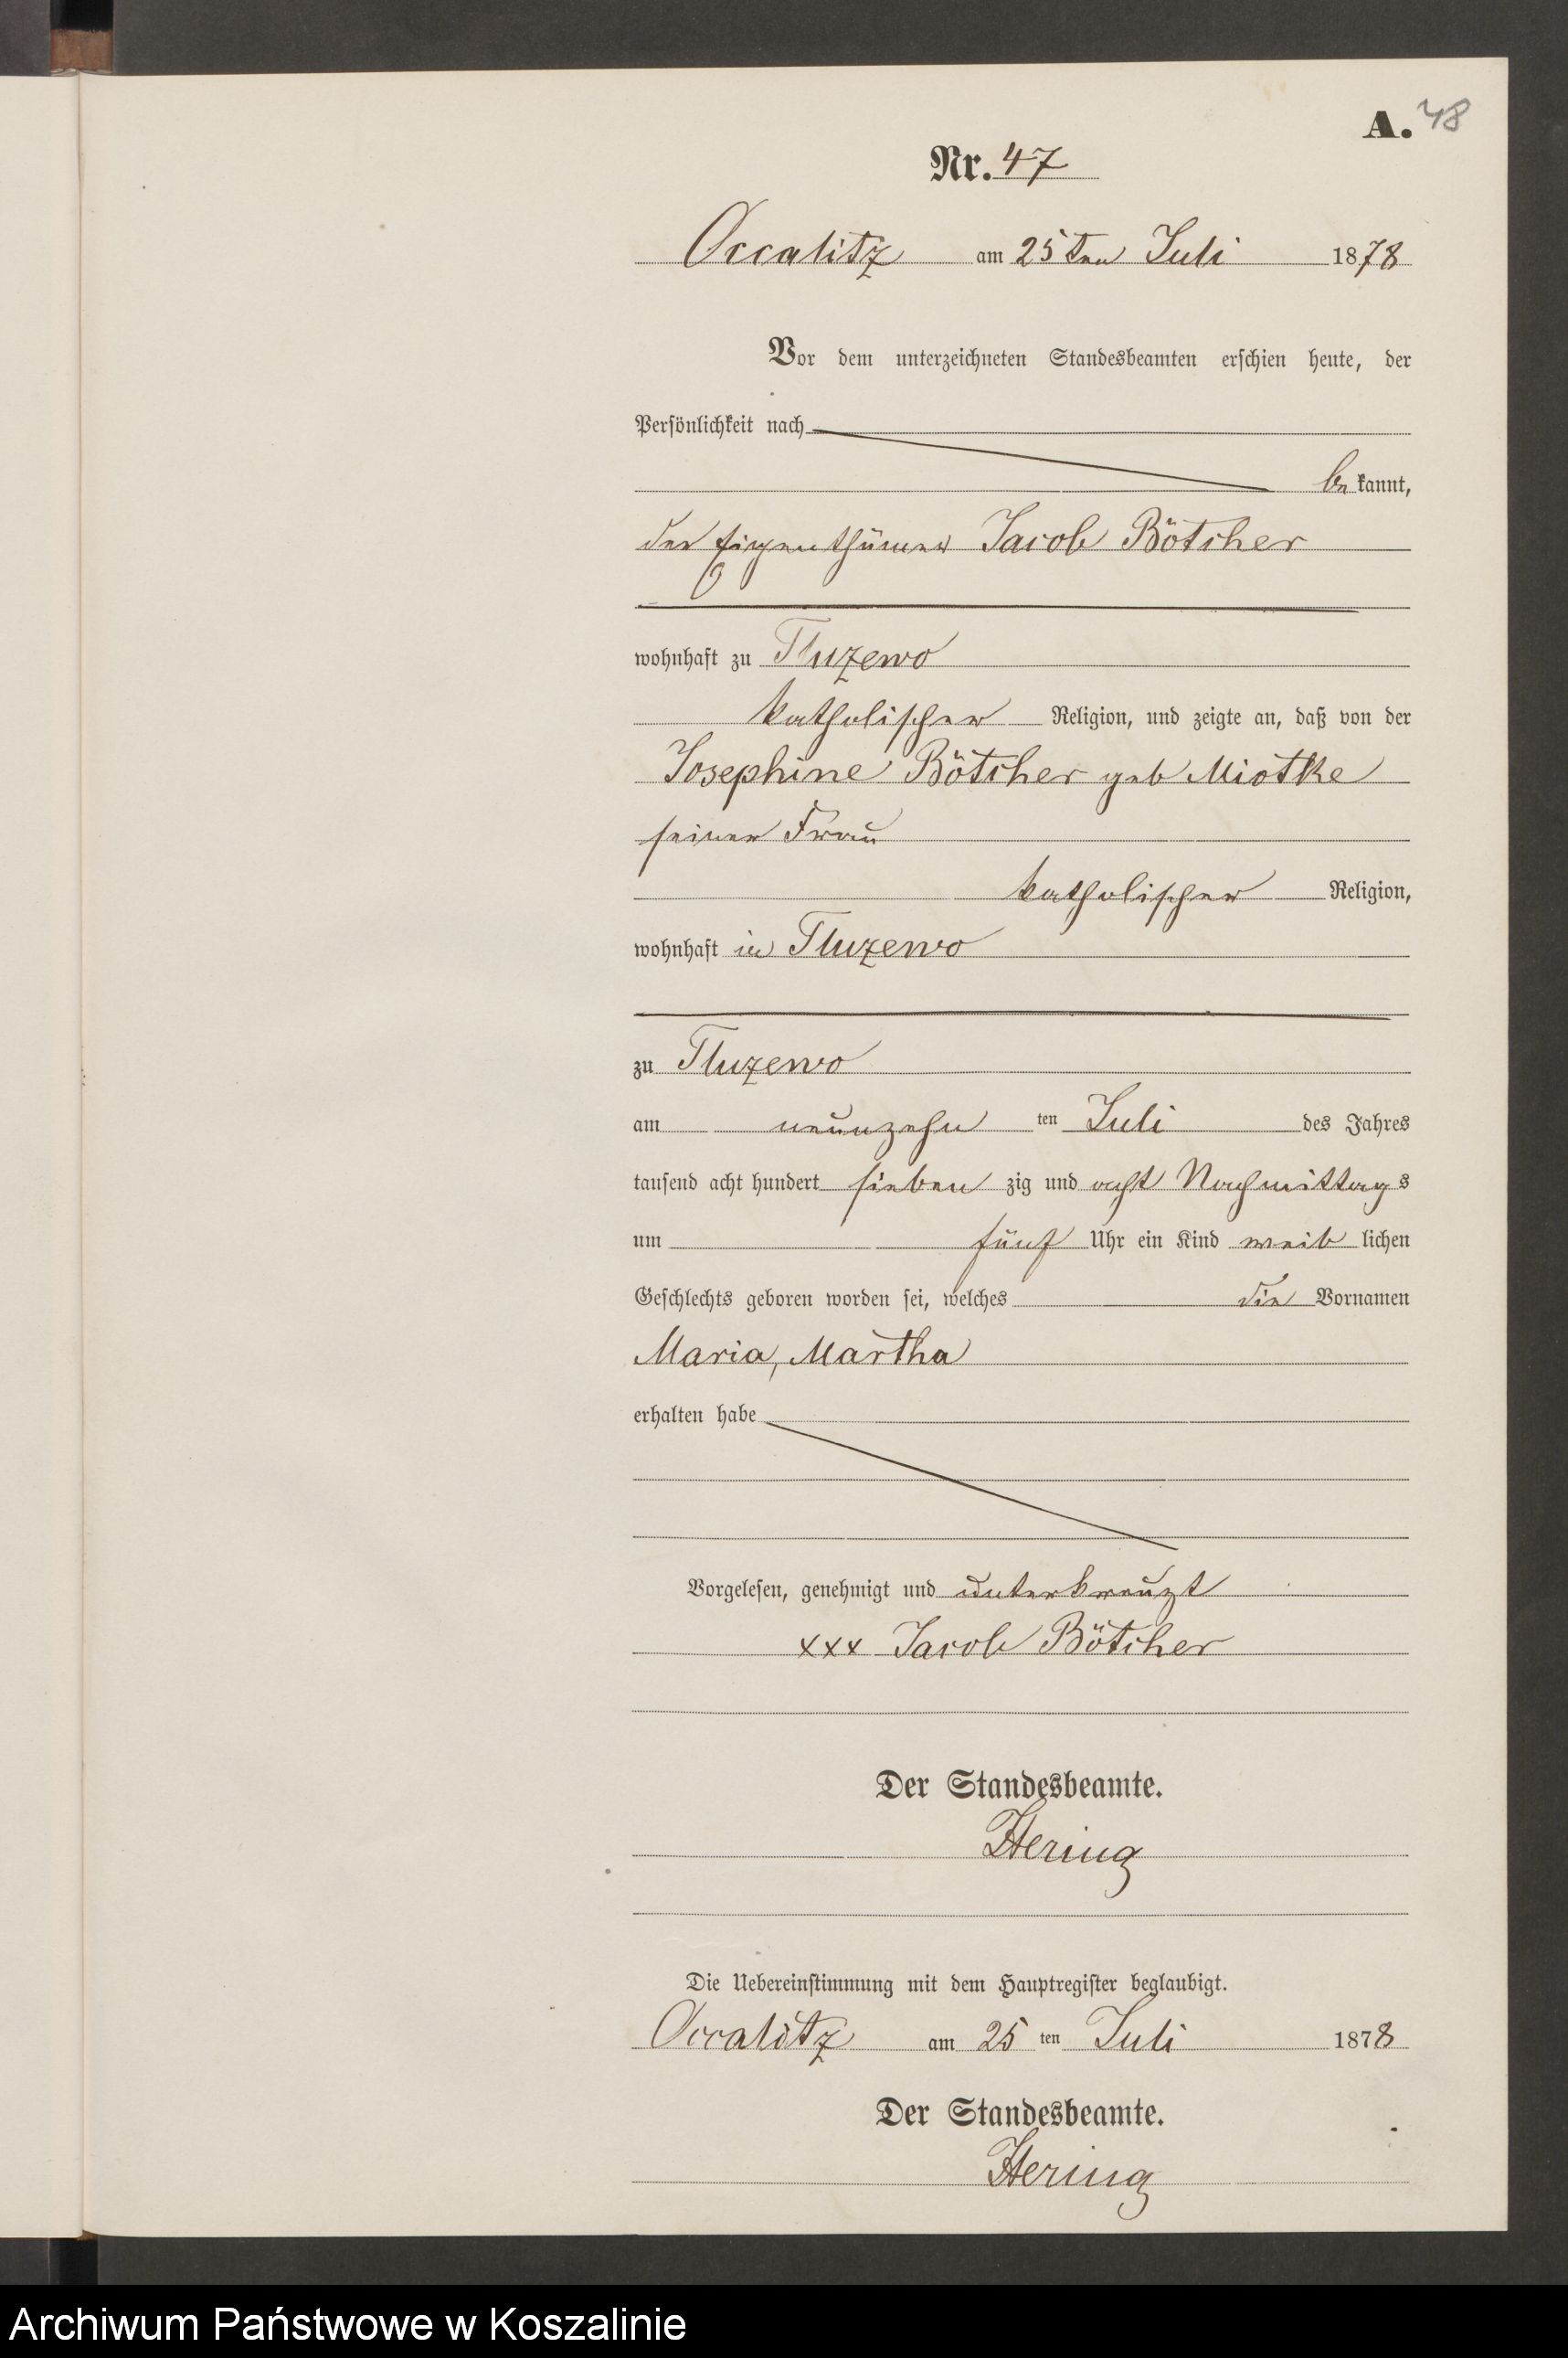 A. 48
Nr. 47
Occalitz am 25ten Juli 1878
Vor dem unterzeichneten Standesbeamten erschien heute, der
Persönlichkeit nach
be kannt,
der Eigenthümer Jacob Bötcher
wohnhaft zu Tluzewo
katholischer Religion, und zeigte an, daß von der
Josephine Bötcher geb Miotke
seiner Frau
katholischer Religion,
wohnhaft in Tluzewo
zu Tluzewo
am neunzehn ten Juli des Jahres
tausend acht hundert sieben zig und acht Nachmittags
um fünf Uhr ein Kind weib lichen
Geschlechts geboren worden sei, welches die Vornamen
Maria, Martha
erhalten habe
Vorgelesen, genehmigt und unterkreuzt
xxx Jacob Bötcher
Der Standesbeamte.
Hering
Die Uebereinstimmung mit dem Hauptregister beglaubigt.
Occalitz am 25 ten Juli 1878
Der Standesbeamte.
Hering
Archiwum Państwowe w Koszalinie